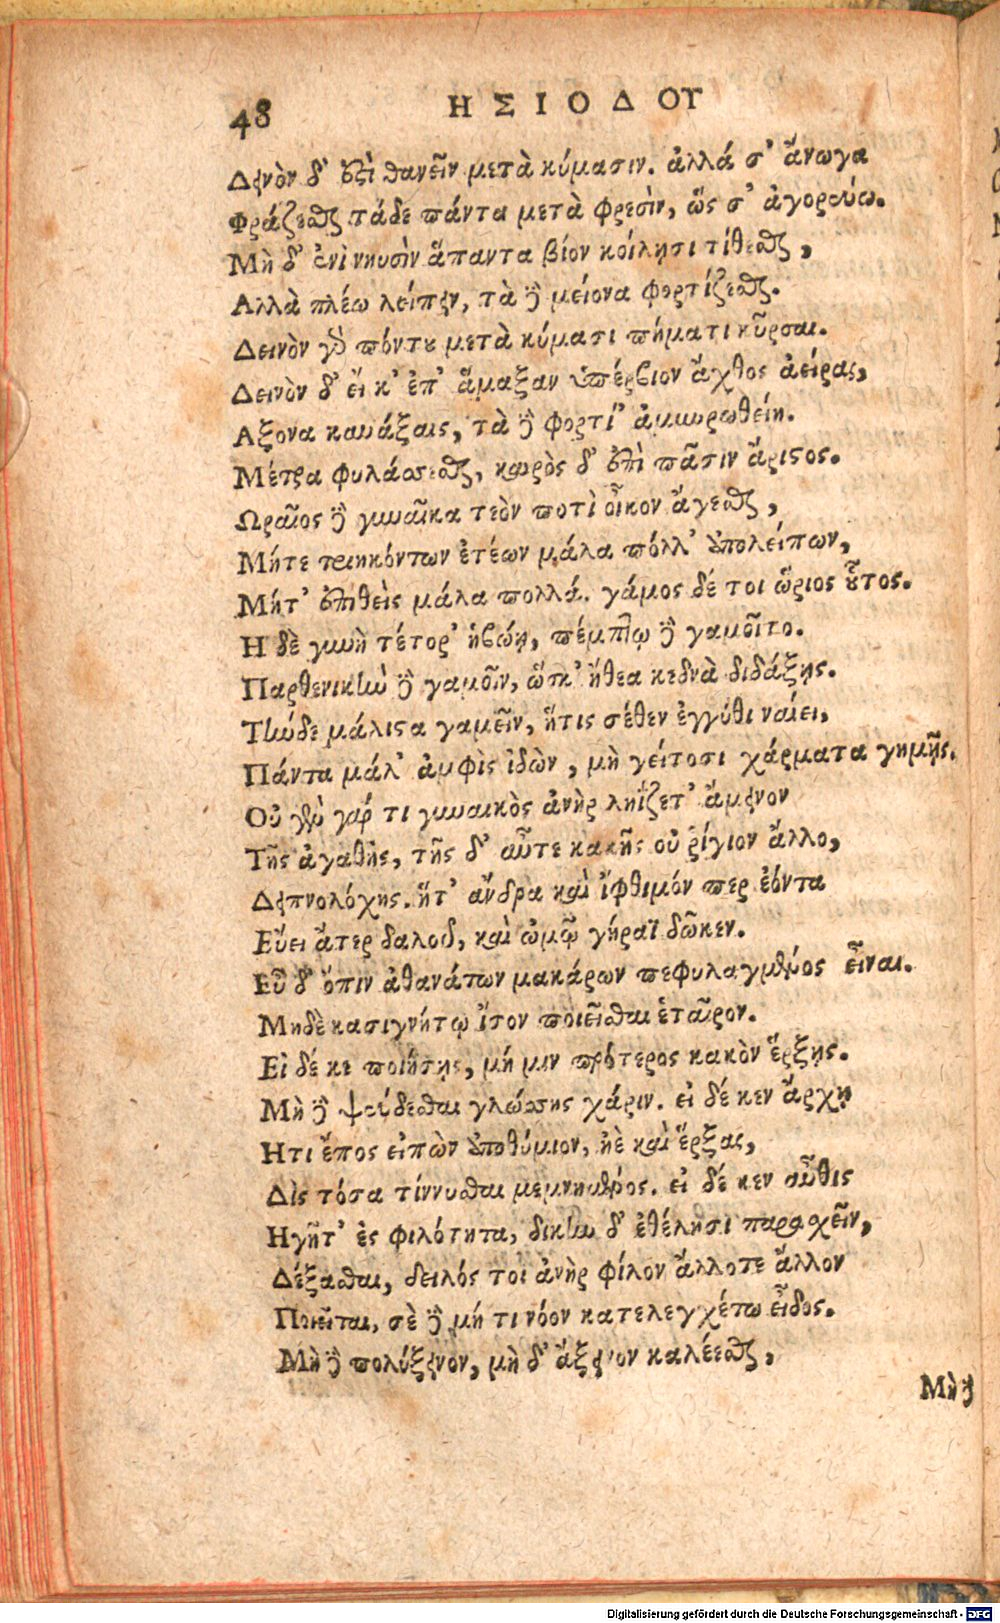 48 ΗΣΙΟΔΟΥ
Δεινὸν δ' ἐστὶ θανεῖν μετὰ κύμασιν. ἀλλά σ' ἄνωγα
Φράζεσθαι τάδε πάντα μετὰ φρεσὶν, ὥς σ' ἀγορεύω.
Μὴ δ' ἐνὶ νηυσὶν ἅπαντα βίον κοίλῃσι τίθεσθαι,
Αλλὰ πλέω λείπειν, τὰ δὲ μείονα φορτίζεσθαι.
Δεινὸν γὰρ πόντου μετὰ κύμασι πήματι κῦρσαι.
Δεινὸν δ' εἴ κ' ἐπ' ἅμαξαν ὑπέρβιον ἄχθος ἀείρας,
Αξονα καυάξαις, τὰ δὲ φορτί' ἀμαυρωθείη.
Μέτρα φυλάσσεσθαι, καιρὸς δ' ἐπὶ πᾶσιν ἄριστος.
Ωραῖος δὲ γυναῖκα τεὸν ποτὶ οἶκον ἄγεσθαι,
Μήτε τριηκόντων ἐτέων μάλα πόλλ' ἀπολείπων,
Μήτ' ἐπιθεὶς μάλα πολλά. γάμος δέ τοι ὥριος οὗτος.
Η δὲ γυνὴ τέτορ' ἡβώῃ, πέμπτῳ δὲ γαμοῖτο.
Παρθενικὴν δὲ γαμεῖν, ὥς κ' ἤθεα κεδνὰ διδάξῃς.
Τὴν δὲ μάλιστα γαμεῖν, ἥτις σέθεν ἐγγύθι ναίει,
Πάντα μάλ' ἀμφὶς ἰδὼν, μὴ γείτοσι χάρματα γημῇς.
Οὐ μὲν γάρ τι γυναικὸς ἀνὴρ ληΐζετ' ἄμεινον
Τῆς ἀγαθῆς, τῆς δ' αὖτε κακῆς οὐ ῥίγιον ἄλλο,
Δειπνολόχης. ἥτ' ἄνδρα καὶ ἴφθιμόν περ ἐόντα
Εὕει ἄτερ δαλοῦ, καὶ ὠμῷ γήραϊ δῶκεν.
Εὖ δ' ὄπιν ἀθανάτων μακάρων πεφυλαγμένος εἶναι.
Μηδὲ κασιγνήτῳ ἴσον ποιεῖσθαι ἑταῖρον.
Εἰ δέ κε ποιήσῃς, μή μιν πρότερος κακὸν ἕρξῃς.
Μὴ δὲ ψεύδεσθαι γλώσσης χάριν. εἰ δέ κεν ἄρχῃ
Ητι ἔπος εἰπὼν ἀποθύμιον, ἠὲ καὶ ἕρξας,
Δὶς τόσα τίννυσθαι μεμνημένος. εἰ δέ κεν αὖθις
Ηγῆτ' ἐς φιλότητα, δίκην δ' ἐθέλῃσι παρασχεῖν,
Δέξασθαι, δειλός τοι ἀνὴρ φίλον ἄλλοτε ἄλλον
Ποιεῖται, σὲ δὲ μή τι νόον κατελεγχέτω εἶδος.
Μὴ δὲ πολύξεινον, μὴ δ' ἄξεινον καλέεσθαι,
Μὴ δὲ
Digitalisierung gefördert durch die Deutsche Forschungsgemeinschaft - DFG